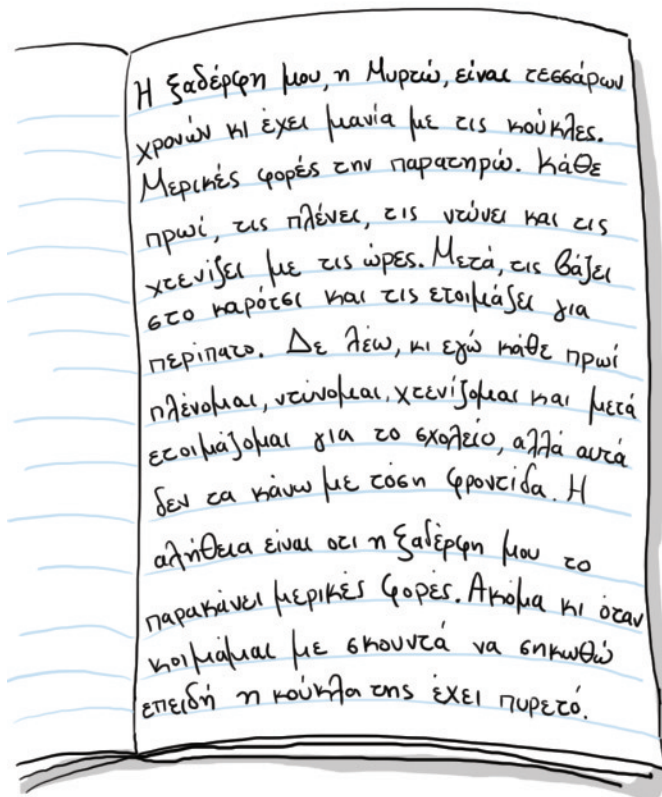 Η ξαδέρφη μου, η Μυρτώ, είναι τεσσάρων
χρονών κι έχει μανία με τις κούκλες.
Μερικές φορές την παρατηρώ. Κάθε
πρωί, τις πλένει, τις ντύνει και τις
χτενίζει με τις ώρες. Μετά, τις βάζει
στο καρότσι και τις ετοιμάζει για
περίπατο. Δε λέω, κι εγώ κάθε πρωί
πλένομαι, ντύνομαι, χτενίζομαι και μετά
ετοιμάζομαι για το σχολείο, αλλά αυτά
δεν τα κάνω με τόση φροντίδα. Η
αλήθεια είναι οτι η ξαδέρφη μου το
παρακάνει μερικές φορές. Ακόμα κι όταν
κοιμάμαι με σκουντά να σηκωθώ
επειδή η κούκλα της έχει πυρετό.